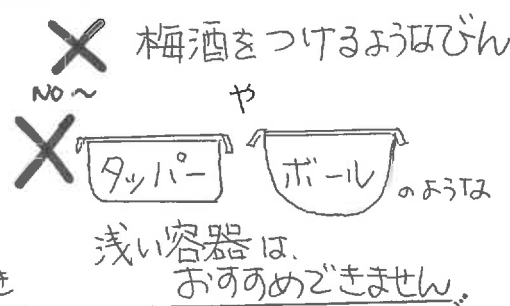 梅酒をつけるようなびん
NO〜
や
タッパー ボール のような
浅い容器は、
おすすめできません…